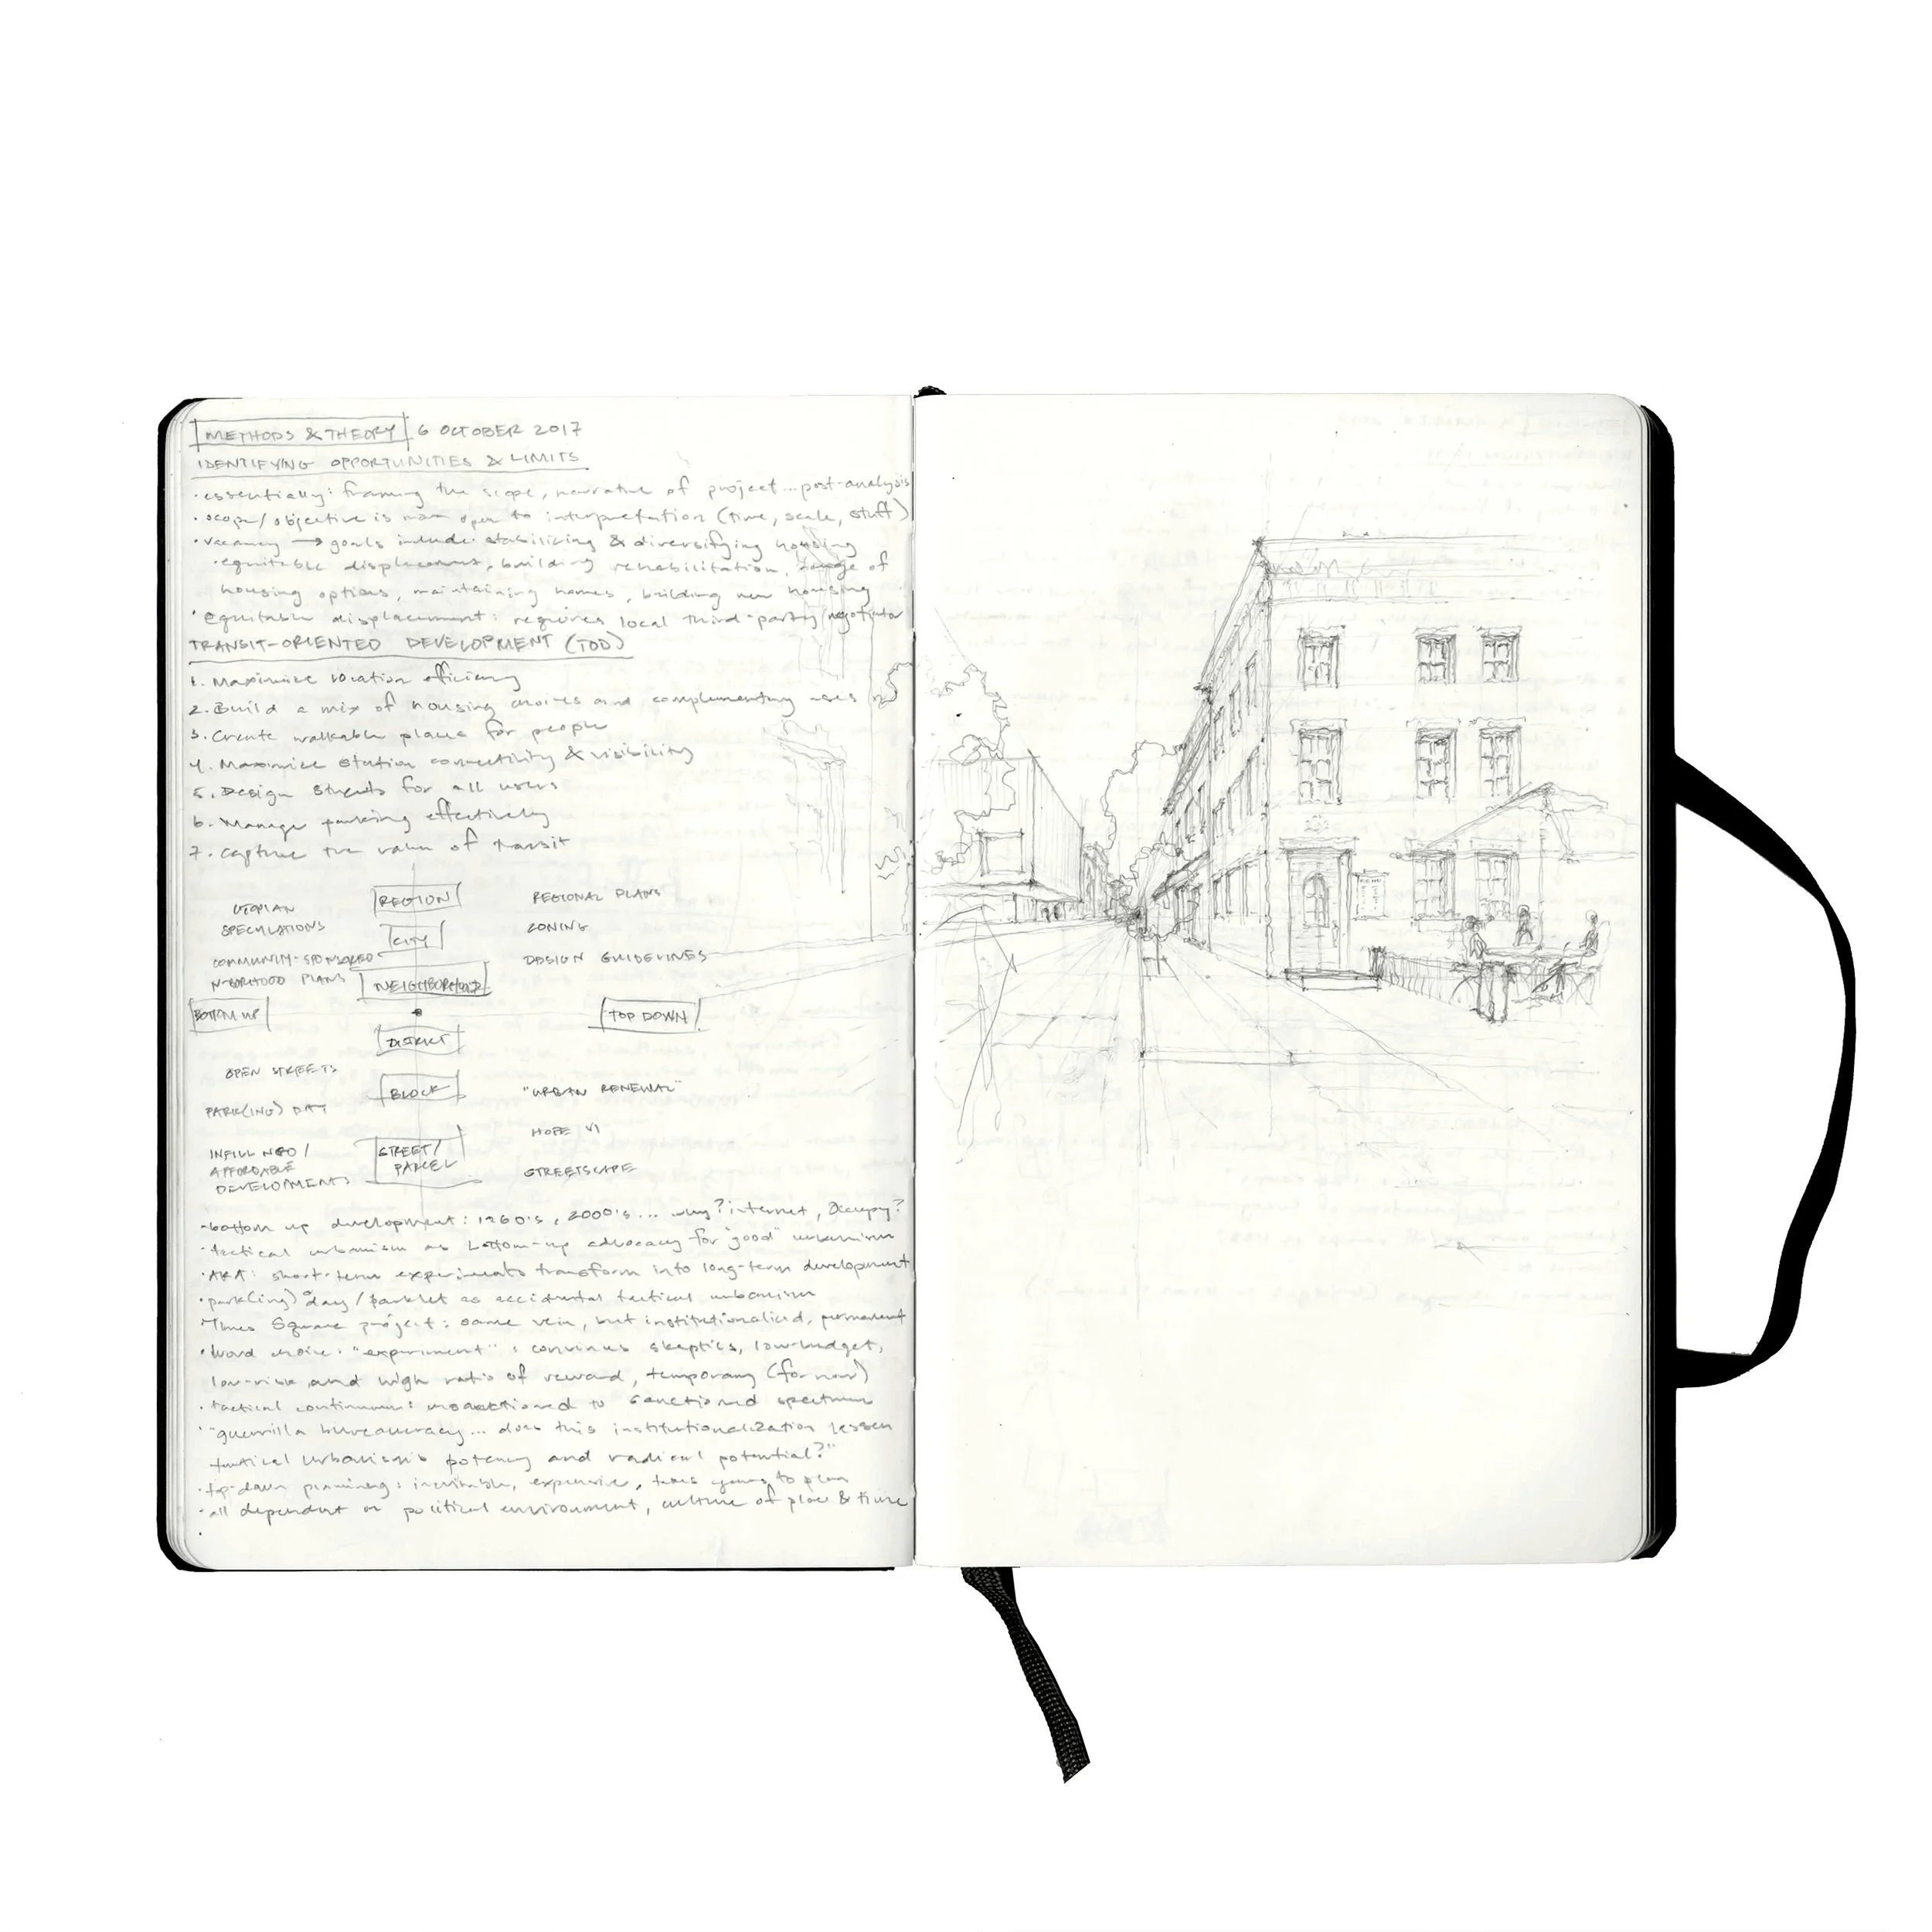 METHODS & THEORY 6 OCTOBER 2017
IDENTIFYING OPPORTUNITIES & LIMITS
· essentially: framing the scope, narrative of project... post-analysis
· scope/objective is more open to interpretation (time, scale, stuff)
· vacancy → goals include: stabilizing & diversifying housing
· equitable displacement, building rehabilitation, range of
housing options, maintaining homes, building new housing
· equitable displacement: requires local third-party negotiator
TRANSIT-ORIENTED DEVELOPMENT (TOD)
1. Maximize location efficiency
2. Build a mix of housing choices and complementary uses
3. Create walkable places for people
4. Maximize station connectivity & visibility
5. Design streets for all users
6. Manage parking effectively
7. Capture the value of transit
UTOPIAN REGION REGIONAL PLANS
SPECULATIONS CITY ZONING
COMMUNITY-SPONSORED DESIGN GUIDELINES
N-BORHOOD PLANS NEIGHBORHOOD
BOTTOM UP TOP DOWN
DISTRICT
OPEN STREETS
BLOCK "URBAN RENEWAL"
PARK(ING) DAY
HOPE VI
INFILL NGO/ STREET/
AFFORDABLE PARCEL STREETSCAPE
DEVELOPMENTS
· bottom up development: 1960's, 2000's... why? internet, Occupy?
· tactical urbanism as bottom-up advocacy for "good" urbanism
· AKA: short-term experiments transform into long-term development
· park(ing) day/parklet as accidental tactical urbanism
· Times Square project: same vein, but institutionalized, permanent
· word choice: "experiment": convinces skeptics, low-budget,
low-risk and high ratio of reward, temporary (for now)
· tactical continuum: unsanctioned to sanctioned spectrum
· "guerrilla bureaucracy... does this institutionalization lessen
tactical urbanism's potency and radical potential?"
· top-down planning: inevitable, expensive, takes years to plan
· all dependent on political environment, culture of place & time
MENU